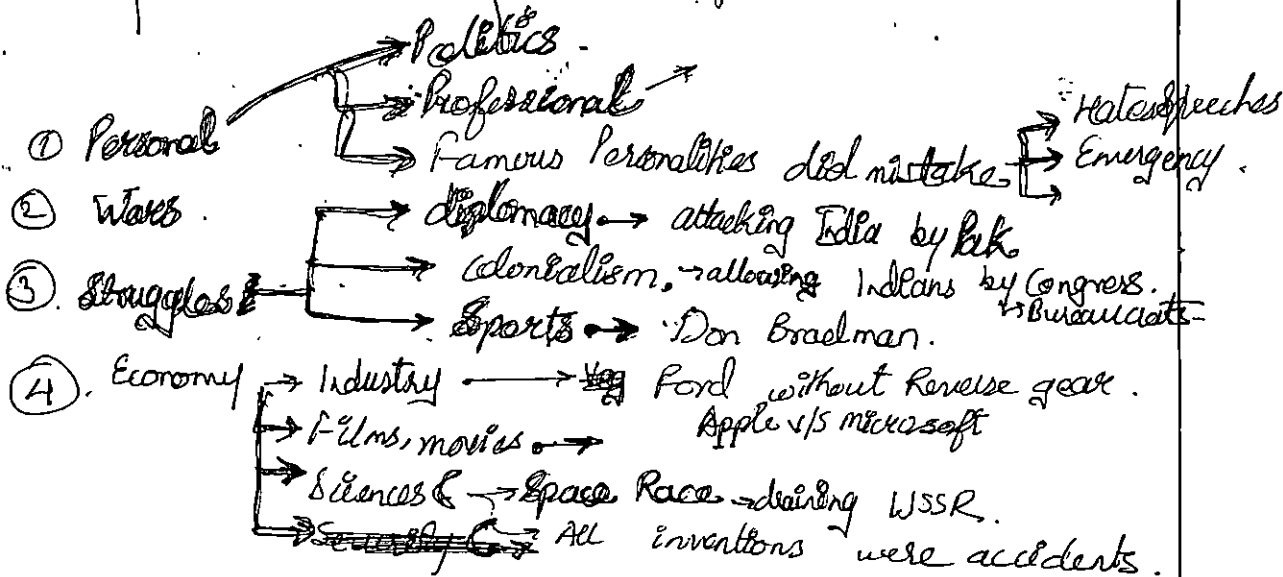 Politics -
Professional →
① Personal → Famous Personalities did mistake → Hatespeeches
→ Emergency.
② Wars. diplomacy → attacking India by Pak
③. Struggles → colonialism, → allowing Indians by Congress.
↳ Bureaucrats -
Sports → Don Bradman.
④. Economy → Industry → Ford without Reverse gear.
→ Films, movies → Apple v/s microsoft
→ Sciences → Space Race → draining USSR.
→ Security → All inventions were accidents.